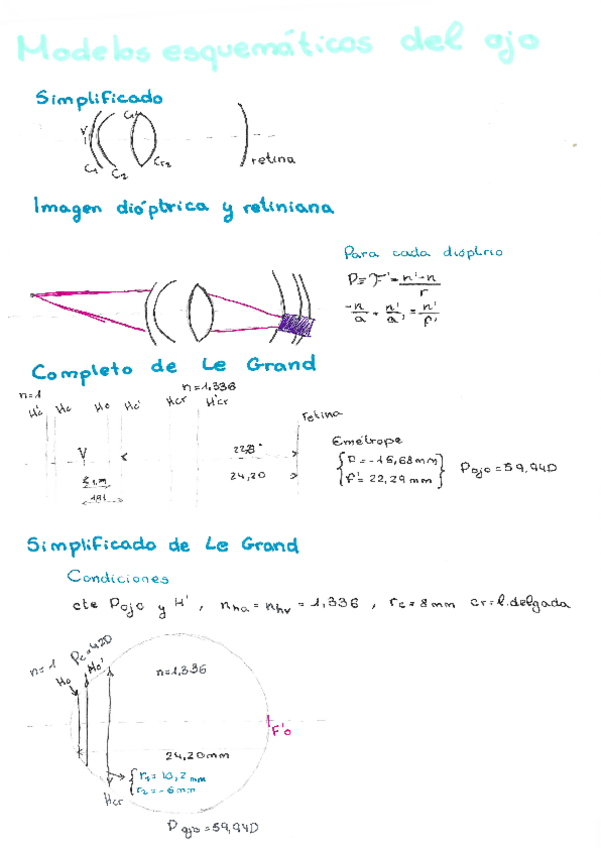 Modelos esquemáticos del ojo
Simplificado
V
C1
C2
Cr1
Cr2
retina
Imagen dióptrica y retiniana
Para cada dióptrio
P = F' = n'-n / r
-n/a + n'/a' = n'/f'
Completo de Le Grand
n=1
n=1,336
H'c Hc Ho H'o Hcr H'cr
retina
V
24,20
Emétrope
f' = 22,29 mm
Pojo = 59,94D
Simplificado de Le Grand
Condiciones
cte Pojo y H', nha = nhv = 1,336, rc = 8mm cr=l.delgada
n=1
Pc=42D
Ho Ho'
n=1,336
F'o
24,20mm
r1 = 10,2 mm
r2 = -6 mm
Hcr
Pojo = 59,94D